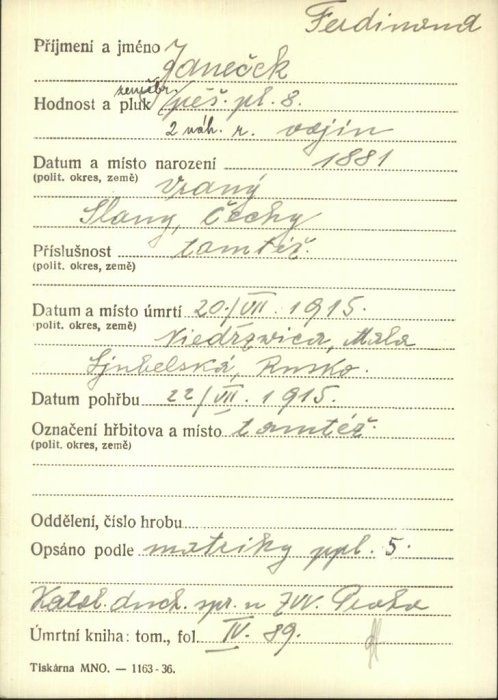 Ferdinand
Příjmení a jméno Janeček
zeměbr.
Hodnost a pluk pěš. pl. 8.
2 náh. r. vojín
Datum a místo narození 1881
(polit. okres, země) Vraný
Slaný, Čechy
Příslušnost tamtéž.
(polit. okres, země)
Datum a místo úmrtí 20./VII. 1915.
(polit. okres, země) Niedrzwica, Mala
Ljubelská, Rusko.
Datum pohřbu 22/VII. 1915.
Označení hřbitova a místo tamtéž.
(polit. okres, země)
Oddělení, číslo hrobu
Opsáno podle matriky ppl. 5.
Katol. duch. spr. u ZVV. Praha
Úmrtní kniha: tom., fol. IV. 89.
Tiskárna MNO. — 1163-36.